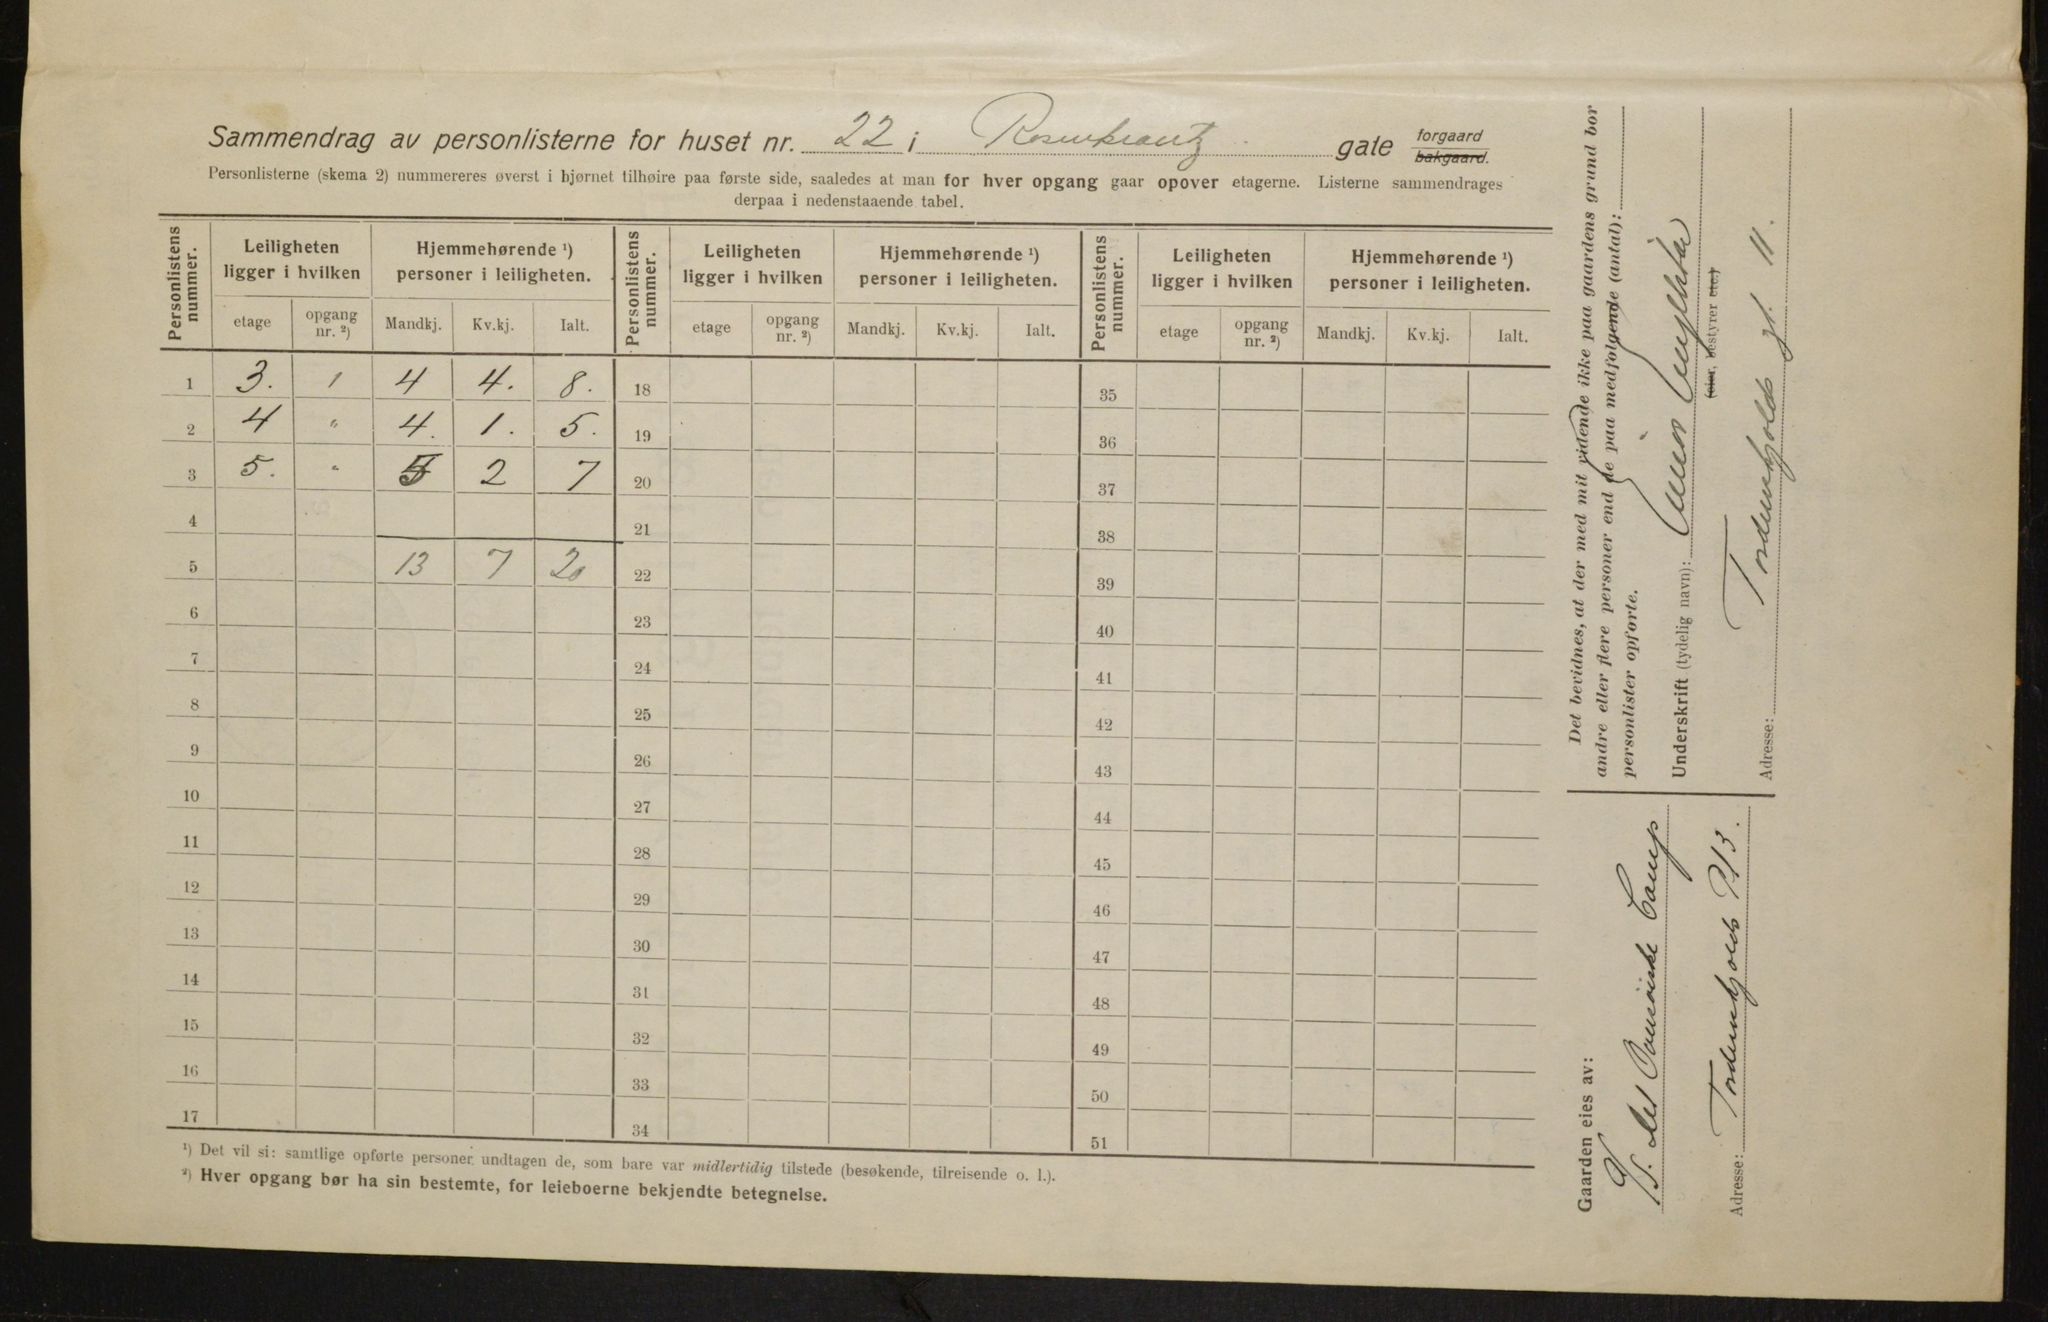 Sammendrag av personlisterne for huset nr. 22 i Rosenkrantz gate forgaard bakgaard.
Personlisterne (skema 2) nummereres øverst i hjørnet tilhøire paa første side, saaledes at man for hver opgang gaar opover etagerne. Listerne sammendrages
derpaa i nedenstaaende tabel.
Personlistens nummer. Leiligheten ligger i hvilken Hjemmehørende ¹) personer i leiligheten. Personlistens nummer. Leiligheten ligger i hvilken Hjemmehørende ¹) personer i leiligheten. Personlistens nummer. Leiligheten ligger i hvilken Hjemmehørende ¹) personer i leiligheten.
etage opgang nr. ²) Mandkj. Kv.kj. Ialt. etage opgang nr. ²) Mandkj. Kv.kj. Ialt. etage opgang nr. ²) Mandkj. Kv.kj. Ialt.
1 3. 1 4 4. 8. 18 35
2 4 " 4. 1. 5. 19 36
3 5. " 5 2 7 20 37
4 21 38
5 13 7 20 22 39
6 23 40
7 24 41
8 25 42
9 26 43
10 27 44
11 28 45
12 29 46
13 30 47
14 31 48
15 32 49
16 33 50
17 34 51
¹) Det vil si: samtlige opførte personer undtagen de, som bare var midlertidig tilstede (besøkende, tilreisende o. l.).
²) Hver opgang bør ha sin bestemte, for leieboerne bekjendte betegnelse.
Det bevidnes, at der med mit vidende ikke paa gaardens grund bor
andre eller flere personer end de paa medfølgende (antal):
personlister opførte.
Underskrift (tydelig navn):
(eier, bestyrer etc.)
Adresse: Tordenskjolds gt. 11.
Gaarden eies av:
det
Adresse: Tordenskjolds Pl 3.